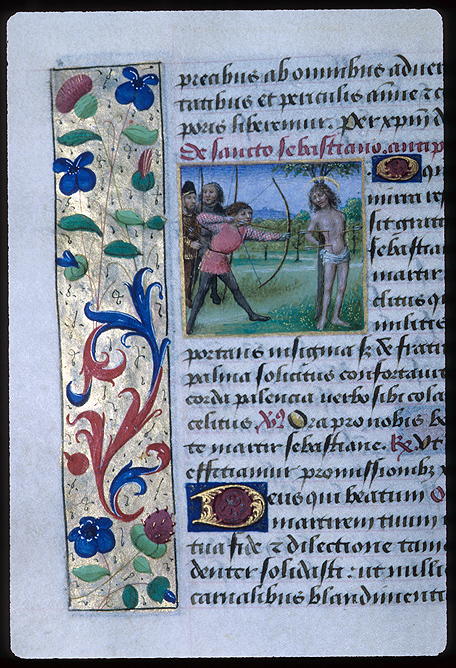 precibus ab omnibus adver
tatibus et periculis anime z c
poris liberemur. Per xpm d
De sancto sebastiano. antip
O qu
mira re
sit grat
sebastia
martir
clitus q
militis
portans insignia sz de fratr
palma solicitus confortavit
corda palencia verbo sibi cola
celitus. Ora pro nobis be
te martir sebastiane. Rx Vt
efficiamur promissionibz x
Deus qui beatum
martirem tuum
tua fide z dilectione tam
denter solidasti: ut nulli
carnalibus blandiment